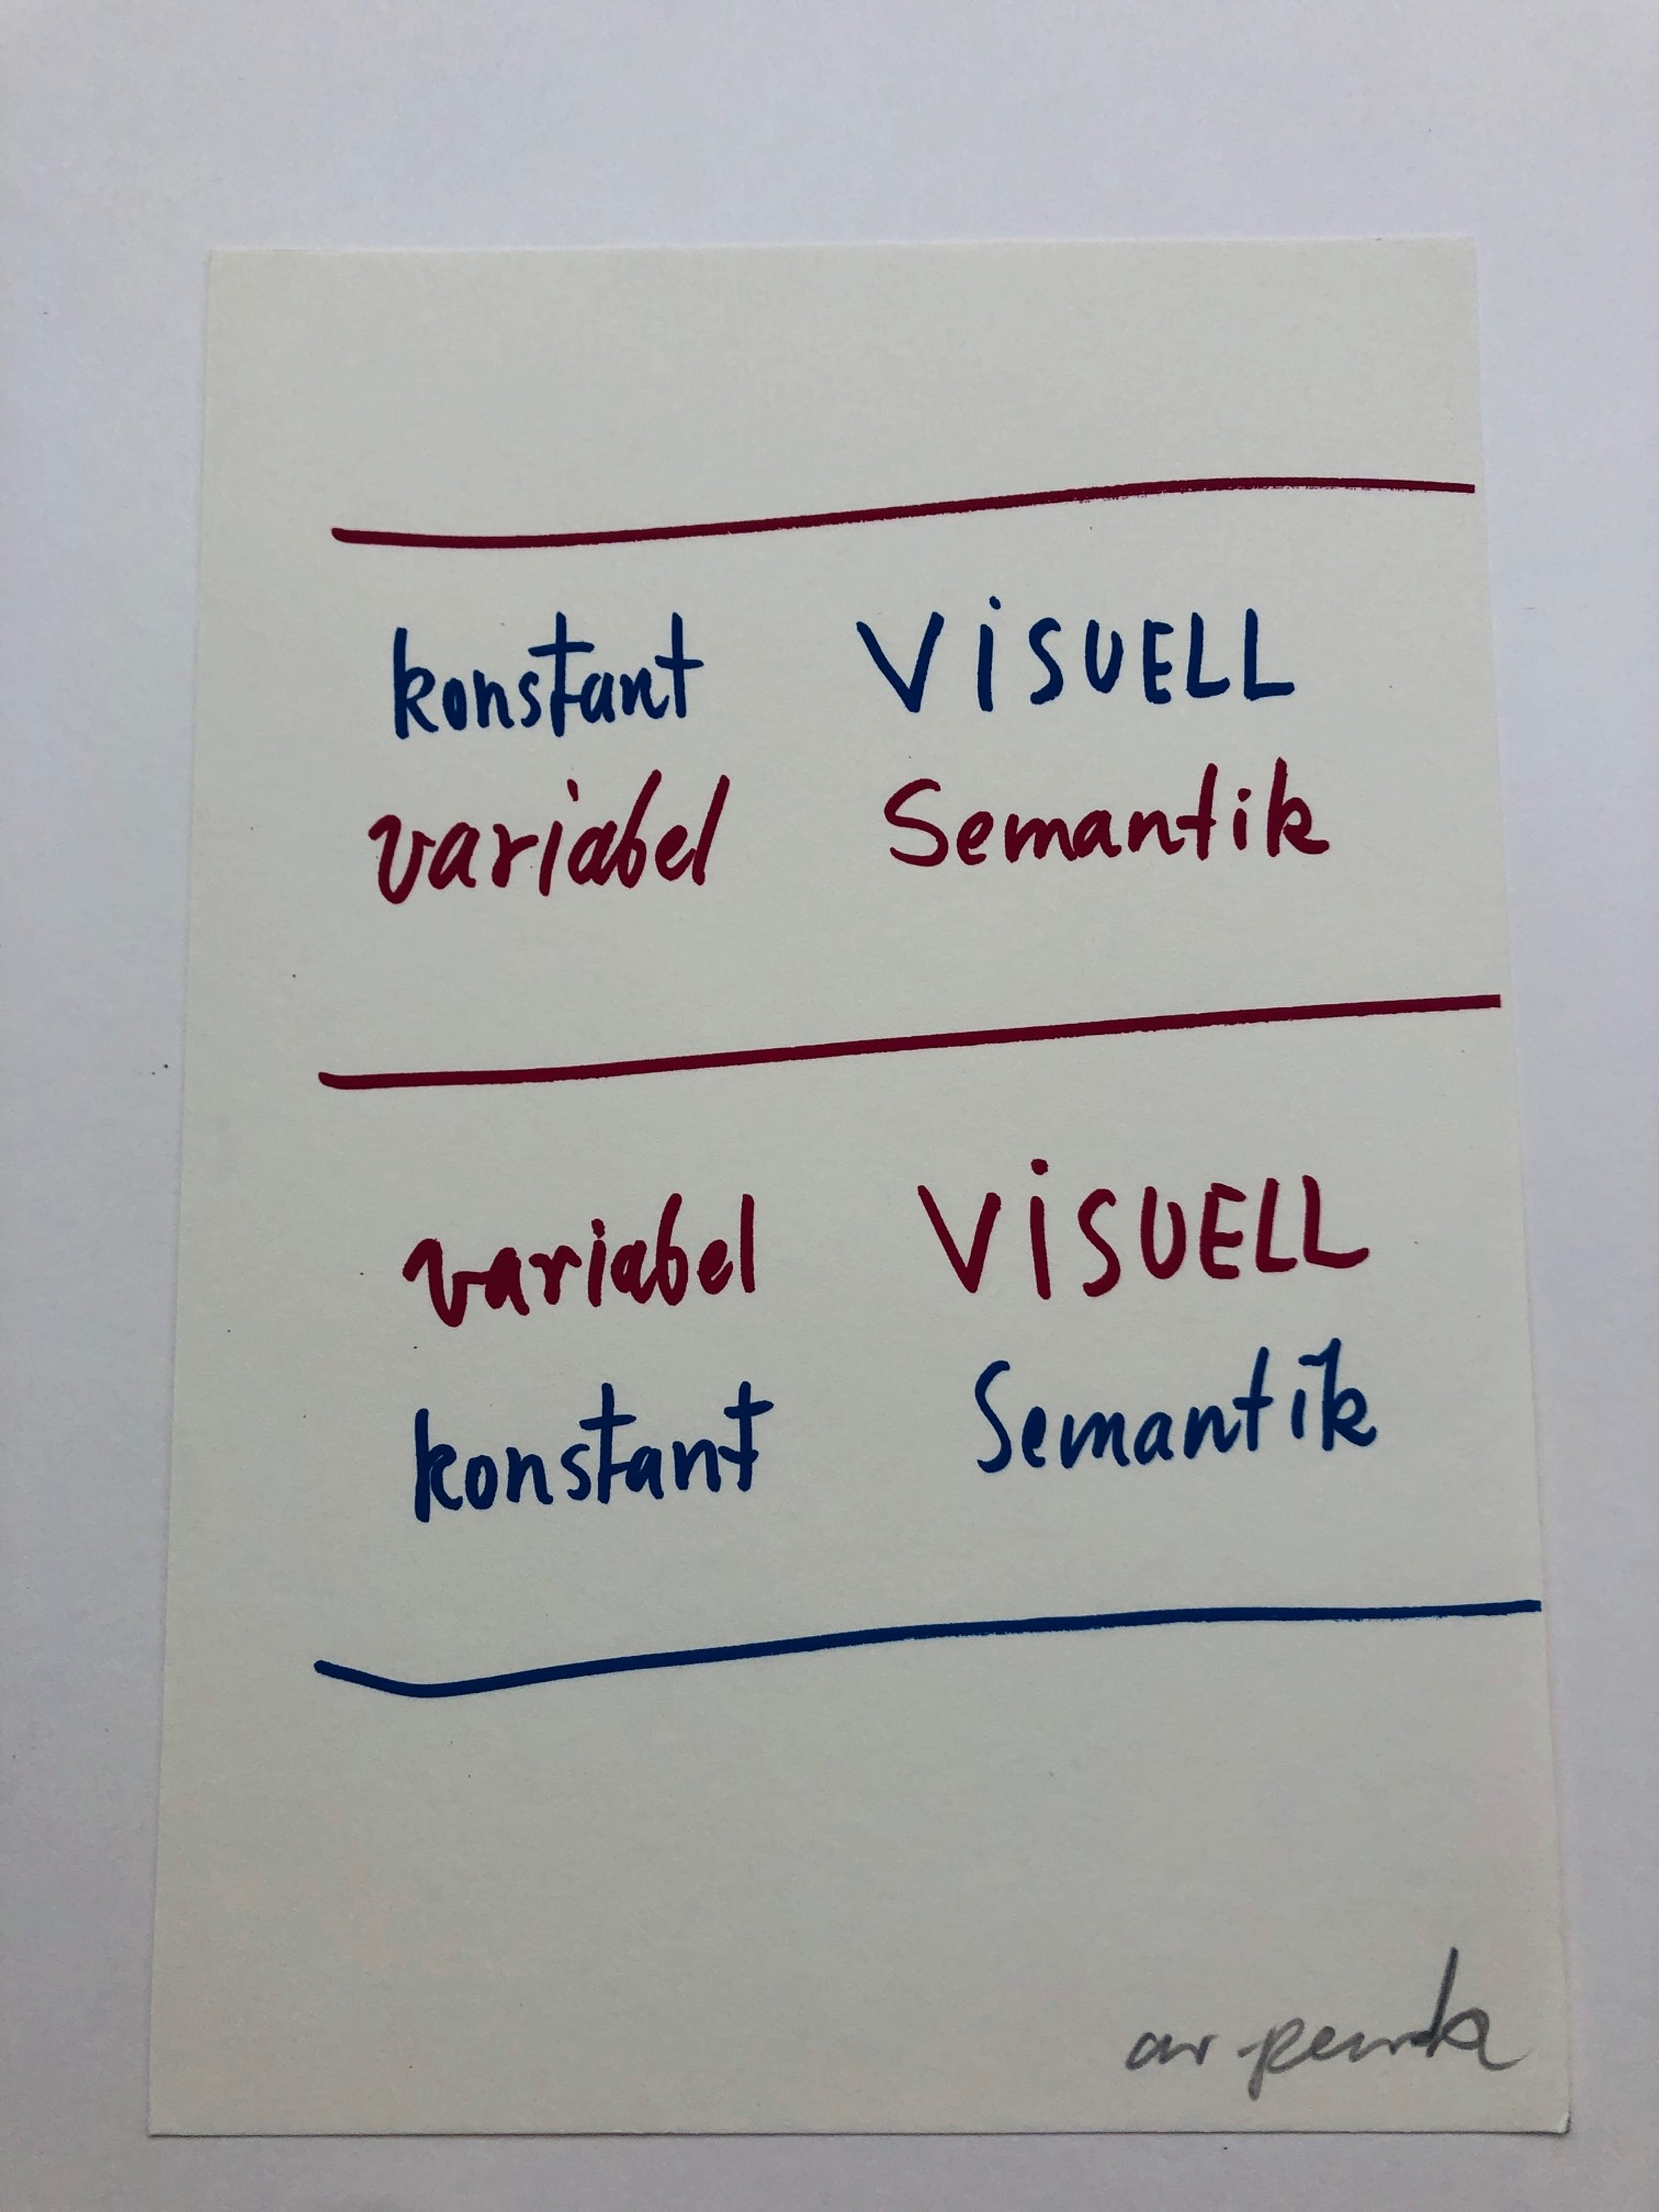 konstant VISUELL
variabel Semantik
variabel VISUELL
konstant Semantik
ar. penck